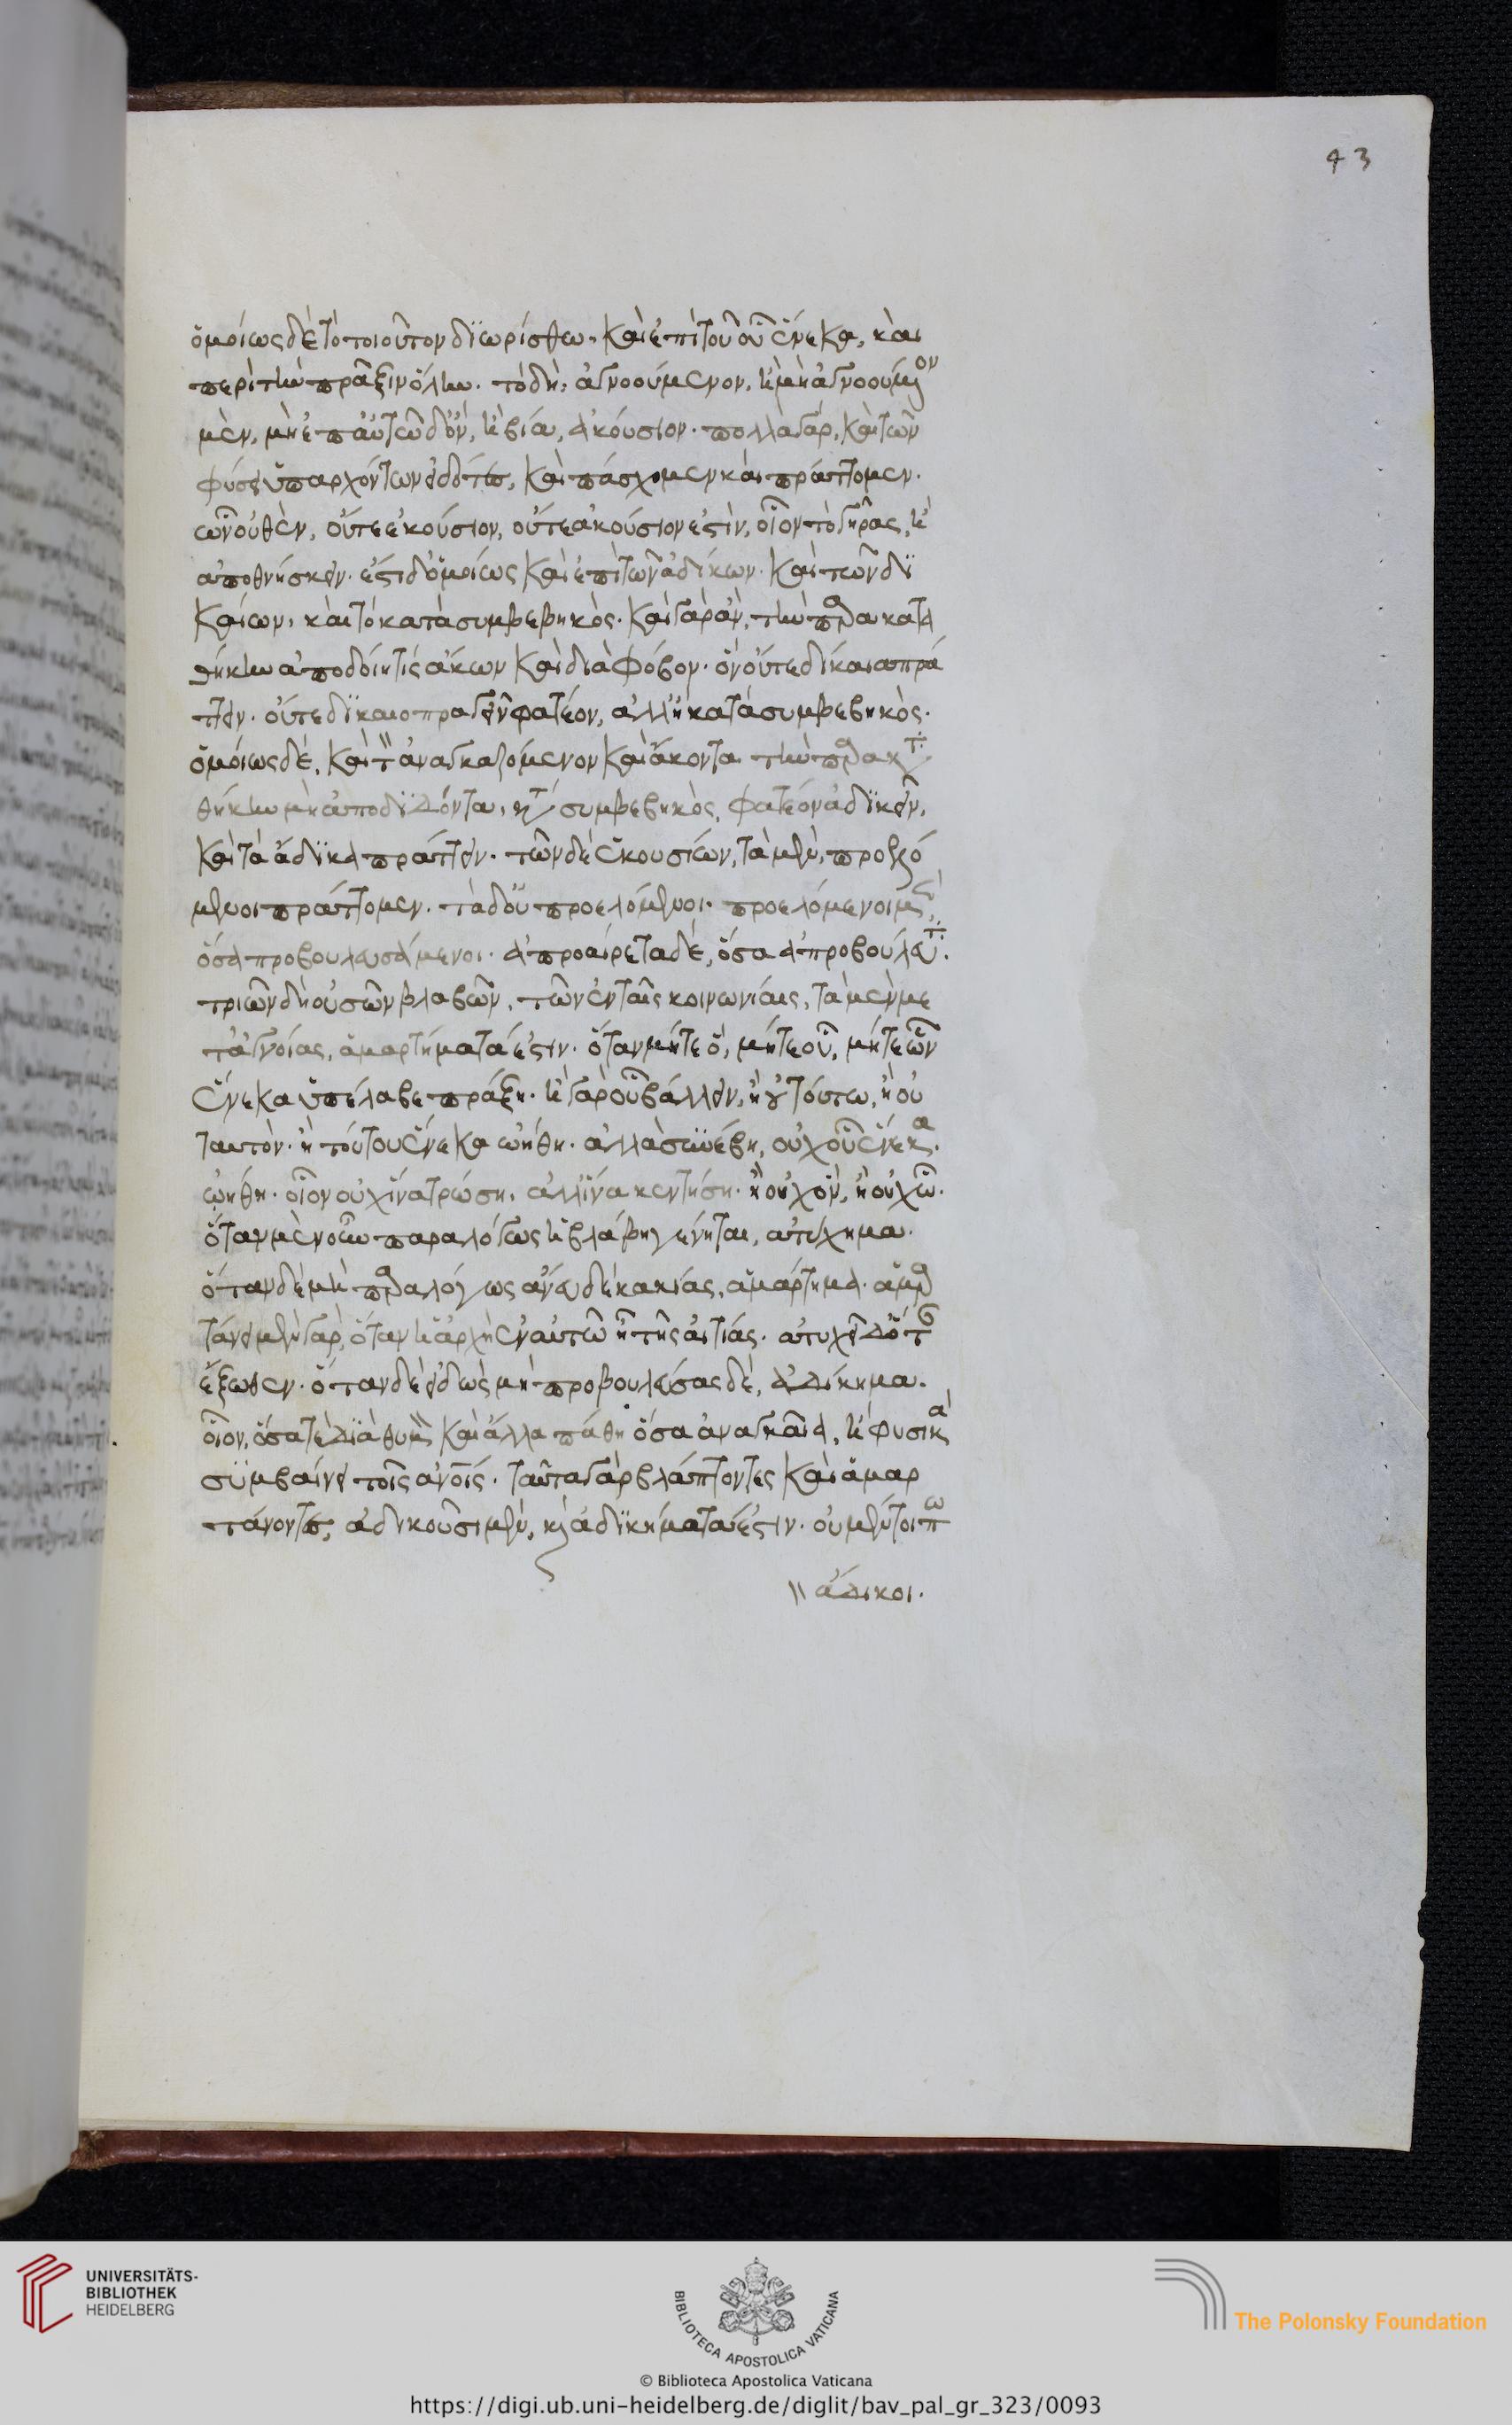 43
ὁμοίως δὲ τὸ τοιοῦτον διωρίσθω. καὶ ἐπὶ τοῦ οὗ ἕνεκα, καὶ
περὶ τὴν πρᾶξιν ὅλην. τὸ δὴ, ἀγνοούμενον, ἢ μὴ ἀγνοούμενον
μὲν, μὴ ἐπ' αὐτῶ δ' ὂν, ἢ βία, ἀκούσιον. πολλὰ γὰρ, καὶ τῶν
φύσει ὑπαρχόντων εἰδότες, καὶ πάσχομεν καὶ πράττομεν.
ὧν οὐθὲν, οὔτε ἑκούσιον, οὔτε ἀκούσιον ἐστὶν, οἷον τὸ γηρᾶς, ἢ
ἀποθνήσκειν. ἔστι δ' ὁμοίως καὶ ἐπὶ τῶν ἀδίκων. καὶ τῶν δι
καίων, καὶ τὸ κατὰ συμβεβηκός. καὶ γὰρ ἂν, τὴν παρακατα
θήκην ἀποδοίη τίς ἄκων καὶ διὰ φόβον. ὃν οὔτε δίκαια πρά
ττειν. οὔτε δικαιοπραγεῖν φατέον, ἀλλ' ἢ κατὰ συμβεβηκός.
ὁμοίως δὲ, καὶ τὸν ἀναγκαζόμενον καὶ ἄκοντα τὴν παρακατα
θήκην μὴ ἀποδιδόντα, κατὰ συμβεβηκὸς, φατέον ἀδικεῖν,
καὶ τὰ ἄδικα πράττειν. τῶν δὲ ἑκουσίων, τὰ μὲν, προελό
μενοι πράττομεν. τὰ δ' οὐ προελόμενοι. προελόμενοι μὲν,
ὅσα προβουλευσάμενοι. ἀπροαίρετα δὲ, ὅσα ἀπροβούλευτα.
τριῶν δὴ οὐσῶν βλαβῶν, τῶν ἐν ταῖς κοινωνίαις, τὰ μὲν με
τ' ἀγνοίας, ἁμαρτήματά ἐστιν. ὅταν μήτε ὃ, μήτε οὗ, μήτε ὧν
ἕνεκα ὑπέλαβε πράξη. ἢ γὰρ οὐ βάλλειν, ἢ οὐ τούτω, ἢ οὐ
ταυτὸν. ἢ τούτου ἕνεκα ὠήθη. ἀλλὰ συνέβη, οὐχ οὗ ἕνεκα
ὠήθη. οἷον οὐχ ἵνα τρώση, ἀλλ' ἵνα κεντήση. ἢ οὐχ ὃν, ἢ οὐχ ᾧ.
ὅταν μὲν οὖν παραλόγως ἡ βλάβη γένηται, ἀτύχημα.
ὅταν δὲ μὴ παραλόγως ἄνευ δὲ κακίας, ἁμάρτημα. ἁμαρ
τάνει μὲν γὰρ, ὅταν ἡ ἀρχὴ ἐν αὐτῶ ἢ τῆς αἰτίας. ἀτυχεῖ δ' ὅταν
ἔξωθεν. ὅταν δὲ εἰδὼς μὴ προβουλεύσας δὲ, ἀδίκημα.
οἷον, ὅσα τε διὰ θυμὸν καὶ ἄλλα πάθη ὅσα ἀναγκαῖα, ἢ φυσικὰ
συμβαίνει τοῖς ἀνοις. ταῦτα γὰρ βλάπτοντες καὶ ἁμαρ
τάνοντες, ἀδικοῦσι μὲν, καὶ ἀδικήματά ἐστιν. οὐ μέντοι πω
ἄδικοι.
UNIVERSITÄTS-
BIBLIOTHEK
HEIDELBERG
BIBLIOTECA APOSTOLICA VATICANA
The Polonsky Foundation
© Biblioteca Apostolica Vaticana
https://digi.ub.uni-heidelberg.de/diglit/bav_pal_gr_323/0093